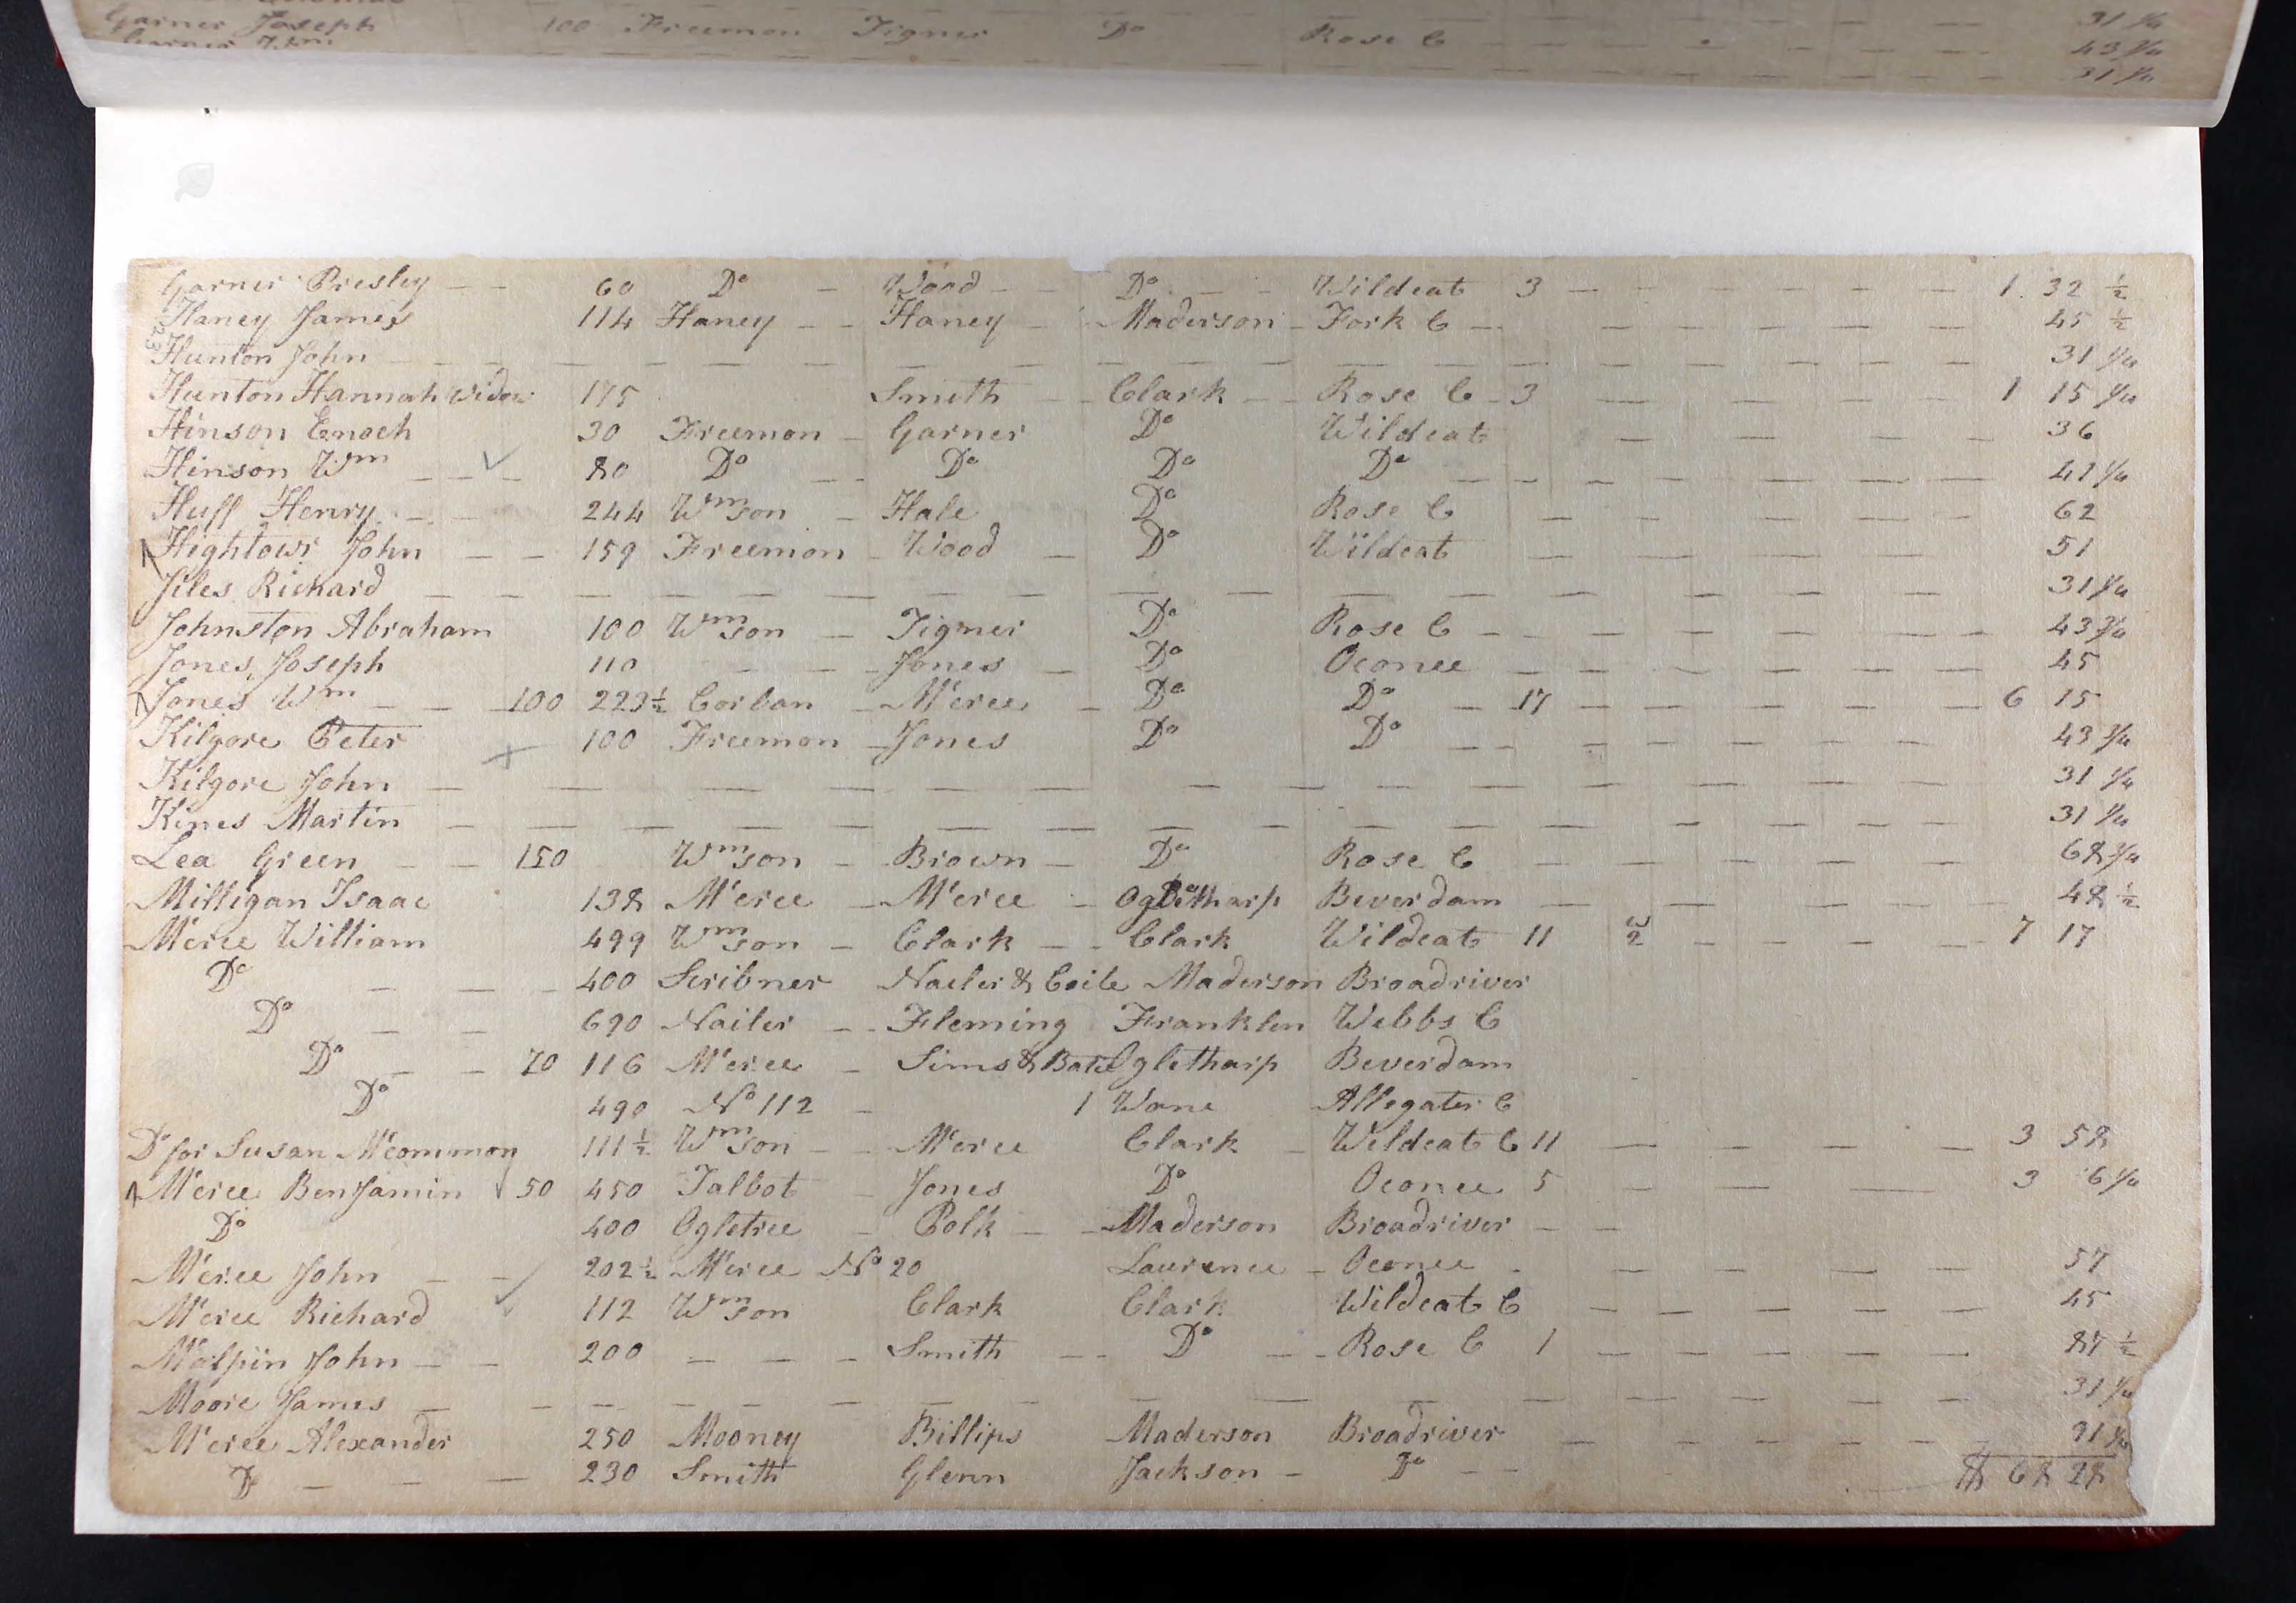 Garner Joseph 100 Freemon Tigner Do Rose C 31 1/4
Garner Wm 43 3/4
31 1/4
Garner Presley 60 Do Wood Do Wildcat 3 1 32 1/2
Haney James 114 Haney Haney Maderson Fork C 45 1/2
Hunton John 31 1/4
Hunton Hannah Widow 175 Smith Clark Rose C 3 1 15 1/4
Hinson Enoch 30 Freemon Garner Do Wildcat 36
Hinson Wm 80 Do Do Do Do 41 1/4
Huff Henry 244 Wmson Hale Do Rose C 62
Hightowr John 159 Freemon Wood Do Wildcat 51
Jiles Richard 31 1/4
Johnston Abraham 100 Wmson Tigner Do Rose C 43 3/4
Jones Joseph 110 Jones Do Oconee 45
Jones Wm 100 223 1/2 Corban Mcree Do Do 17 6 15
Kilgore Peter 100 Freemon Jones Do Do 43 3/4
Kilgore John 31 1/4
Kines Martin 31 1/4
Lea Green 150 Wmson Brown Do Rose C 68 3/4
Milligan Isaac 138 Mcree Mcree Beverdam 48 1/2
Mcree William 499 Wmson Clark Clark Wildcat 11 7 17
Do 400 Scribner Nailer & Coile Maderson Broadriver
Do 690 Nailer Fleming Franklin Webbs C
Do 70 116 Mcree Sims & Ogletharp Beverdam
Do 490 No 112 1 Wane Allegater C
Do for Susan Mcommon 111 1/2 Wmson Mcree Clark Wildcat C 11 3 58
Mcree Benjamin 50 450 Talbot Jones Do Oconee 5 3 6 1/4
Do 400 Ogletree Polk Maderson Broadriver
Mcree John 202 1/2 Mcree No 20 Laurence Oconee 57
Mcree Richard 112 Wmson Clark Clark Wildcat C 45
Malpin John 200 Smith Do Rose C 1 87 1/2
Moore James 31 1/4
Mcree Alexander 250 Mooney Billips Maderson Broadriver 91
Do 230 Smith Glenn Jackson Do $ 68 28